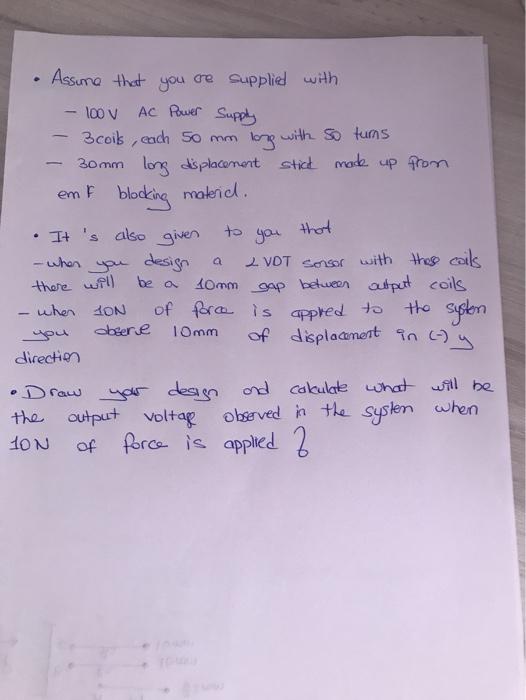 • Assume that you are supplied with
– 100 V AC Power Supply
– 3 coils, each 50 mm long with 50 turns
– 30mm long displacement stick made up from
emF blocking material.
• It 's also given to you that
– when you design a LVDT sensor with these coils
there will be a 10mm gap between output coils
– when 10N of force is applied to the system
you observe 10mm of displacement in (-) y
direction
• Draw your design and calculate what will be
the output voltage observed in the system when
10N of force is applied ?